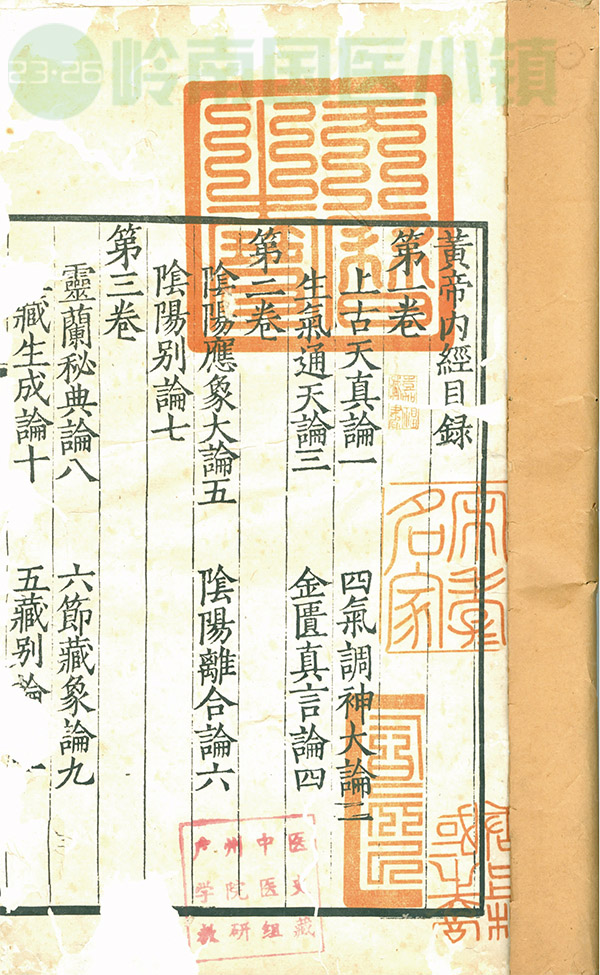 23·26
岭南国医小镇
黃帝内經目録
第一卷
上古天真論一 四氣調神大論二
生氣通天論三 金匱真言論四
第二卷
陰陽應象大論五 陰陽離合論六
陰陽别論七
第三卷
靈蘭秘典論八 六節藏象論九
藏生成論十 五藏别論一
广州中医
学院医史
教研组藏